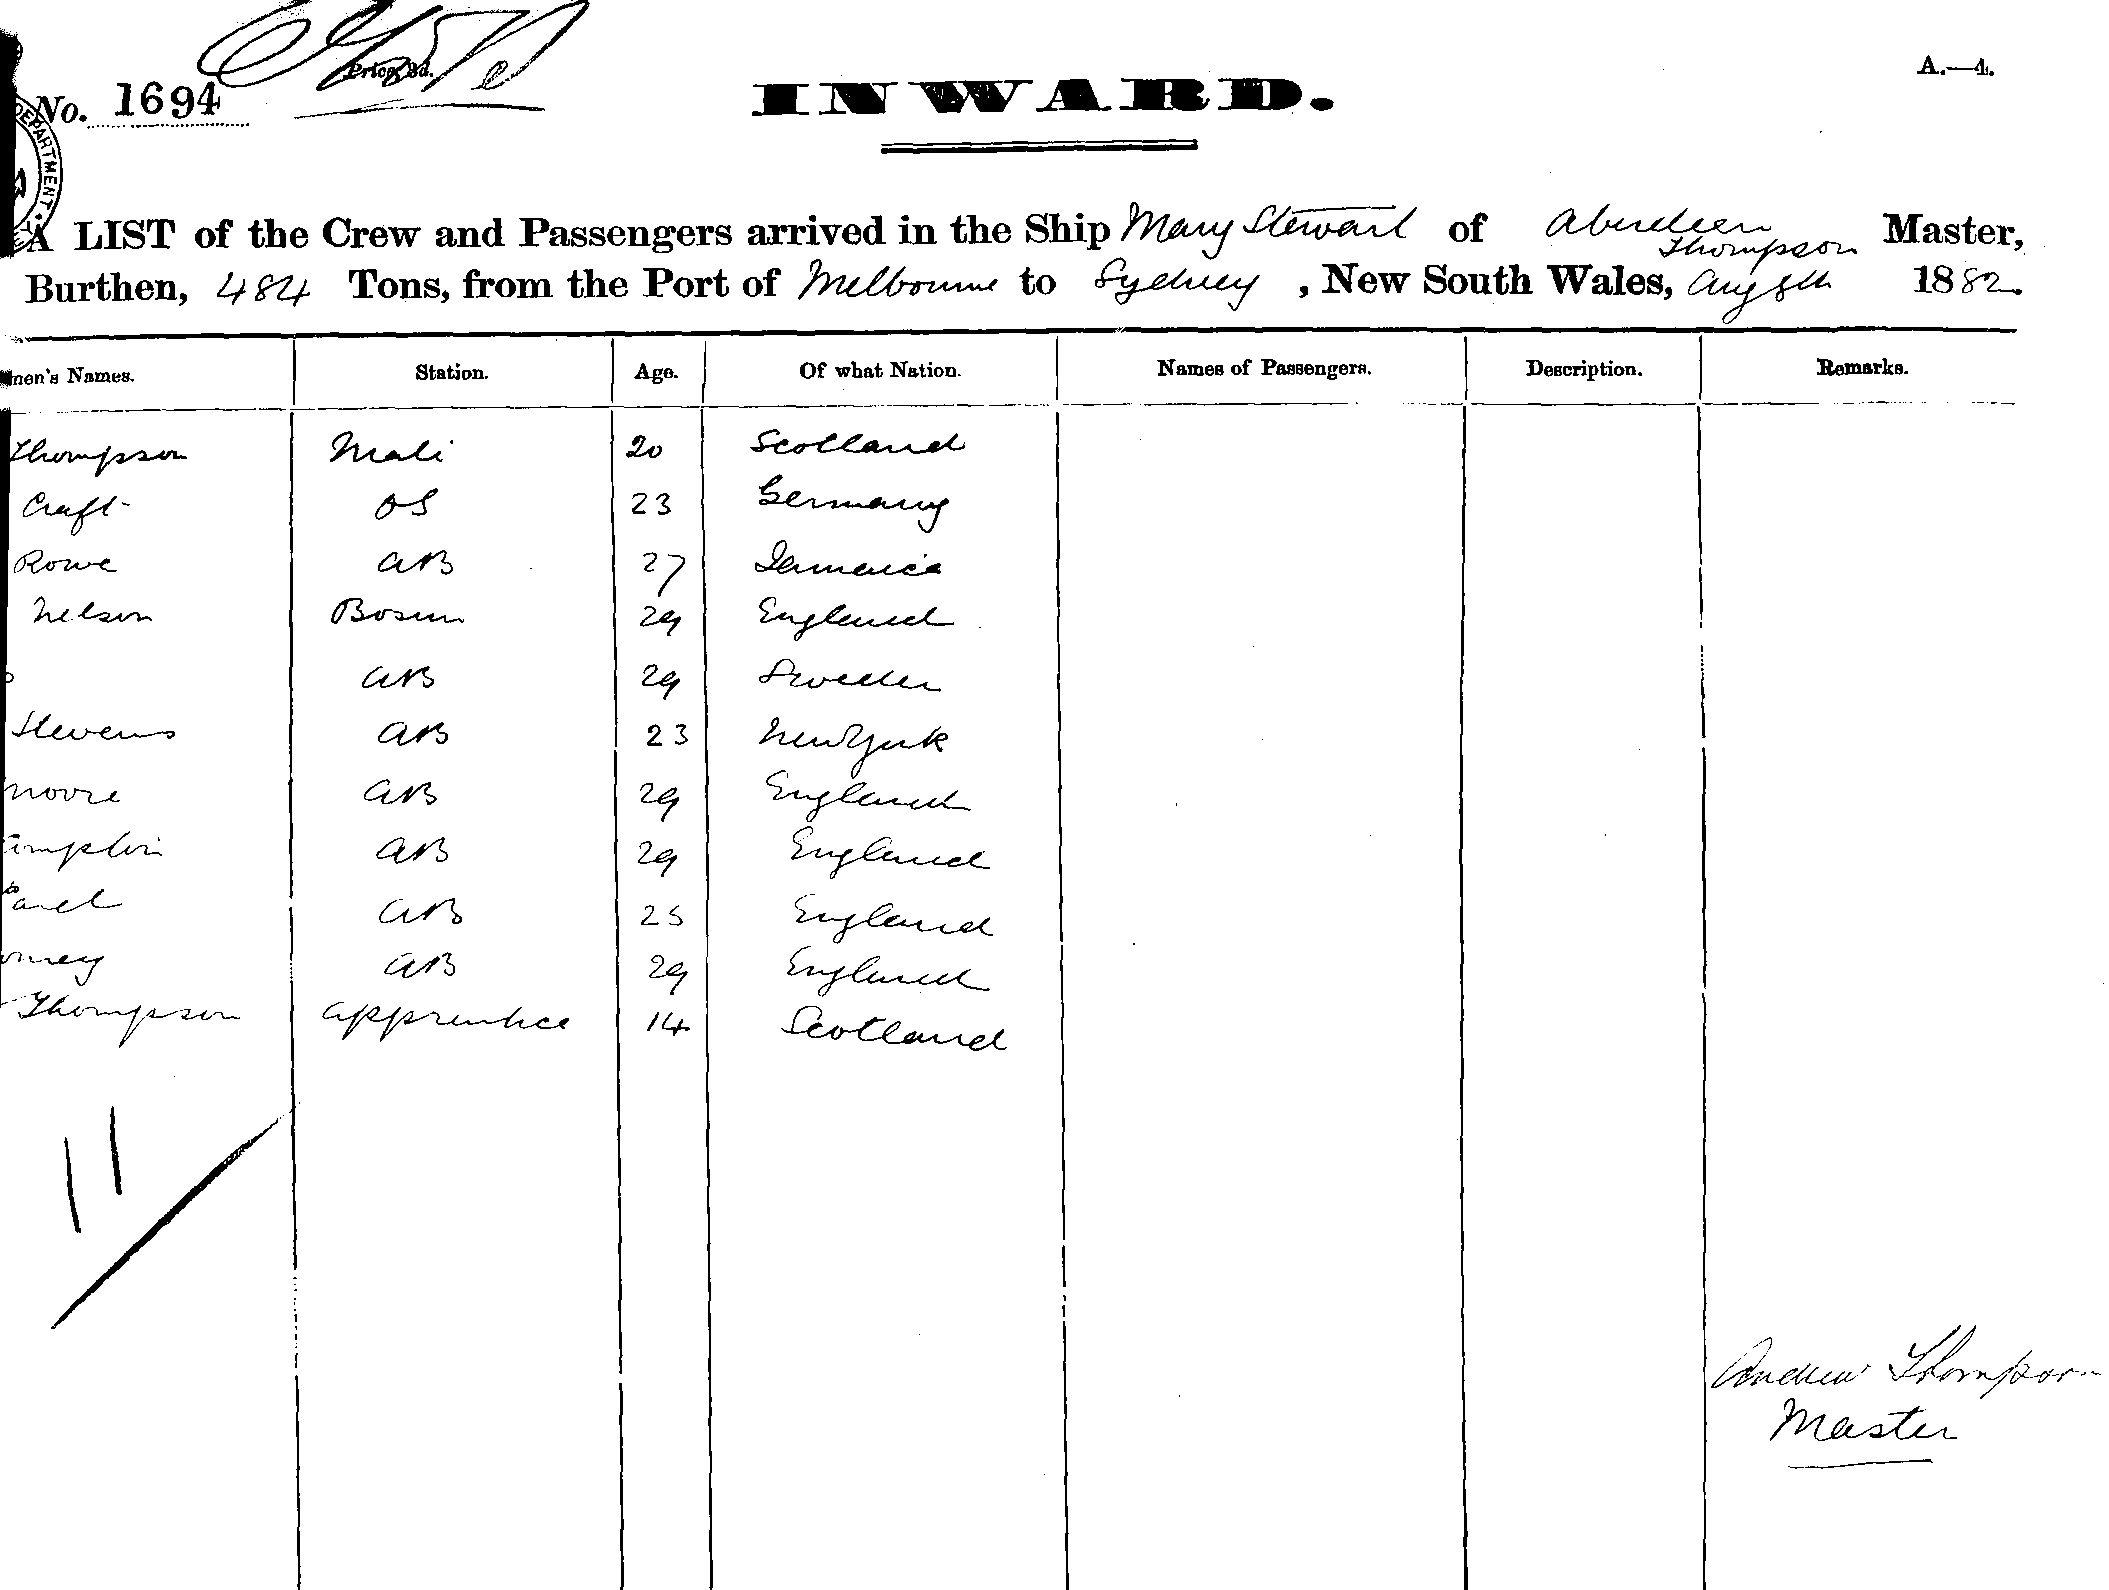 A.—4.
Price, 3d.
No. 1694
INWARD.
DEPARTMENT
A LIST of the Crew and Passengers arrived in the Ship Mary Stewart of Aberdeen Thompson Master,
Burthen, 484 Tons, from the Port of Melbourne to Sydney, New South Wales, Aug 8th 1882.
men's Names. Station. Age. Of what Nation. Names of Passengers. Description. Remarks.
Thompson 20 Scotland
Craft OS 23 Germany
Rowe AB 27 Jamaica
Nelson Bosun 29 England
AB 29 Sweden
Stevens AB 23 New York
Moore AB 29 England
AB 29 England
AB 25 England
AB 29 England
Thompson apprentice 14 Scotland
11
Andrew Thompson
Master